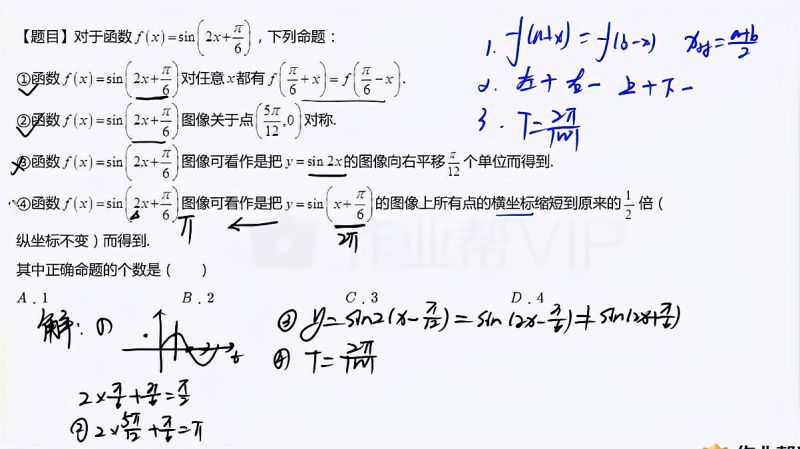 【题目】对于函数 f(x)=sin(2x+π/6)，下列命题：
①函数 f(x)=sin(2x+π/6)对任意x都有 f(π/6+x)=f(π/6−x).
②函数 f(x)=sin(2x+π/6)图像关于点(5π/12,0)对称.
③函数 f(x)=sin(2x+π/6)图像可看作是把 y=sin2x的图像向右平移π/12个单位而得到.
④函数 f(x)=sin(2x+π/6)图像可看作是把 y=sin(x+π/6)的图像上所有点的横坐标缩短到原来的1/2倍（
纵坐标不变）而得到.
其中正确命题的个数是（　　）
A．1　B．2　C．3　D．4
1. f(a+x)=f(b−x)　x对=(a+b)/2
2. 左+右−　上+下−
3. T=2π/|W|
π　2π
作业帮VIP
解：①
2×π/6+π/6=π/2
②2×5π/12+π/6=π
③ y=sin2(x−π/12)=sin(2x−π/6)≠sin(2x+π/6)
④ T=2π/|W|